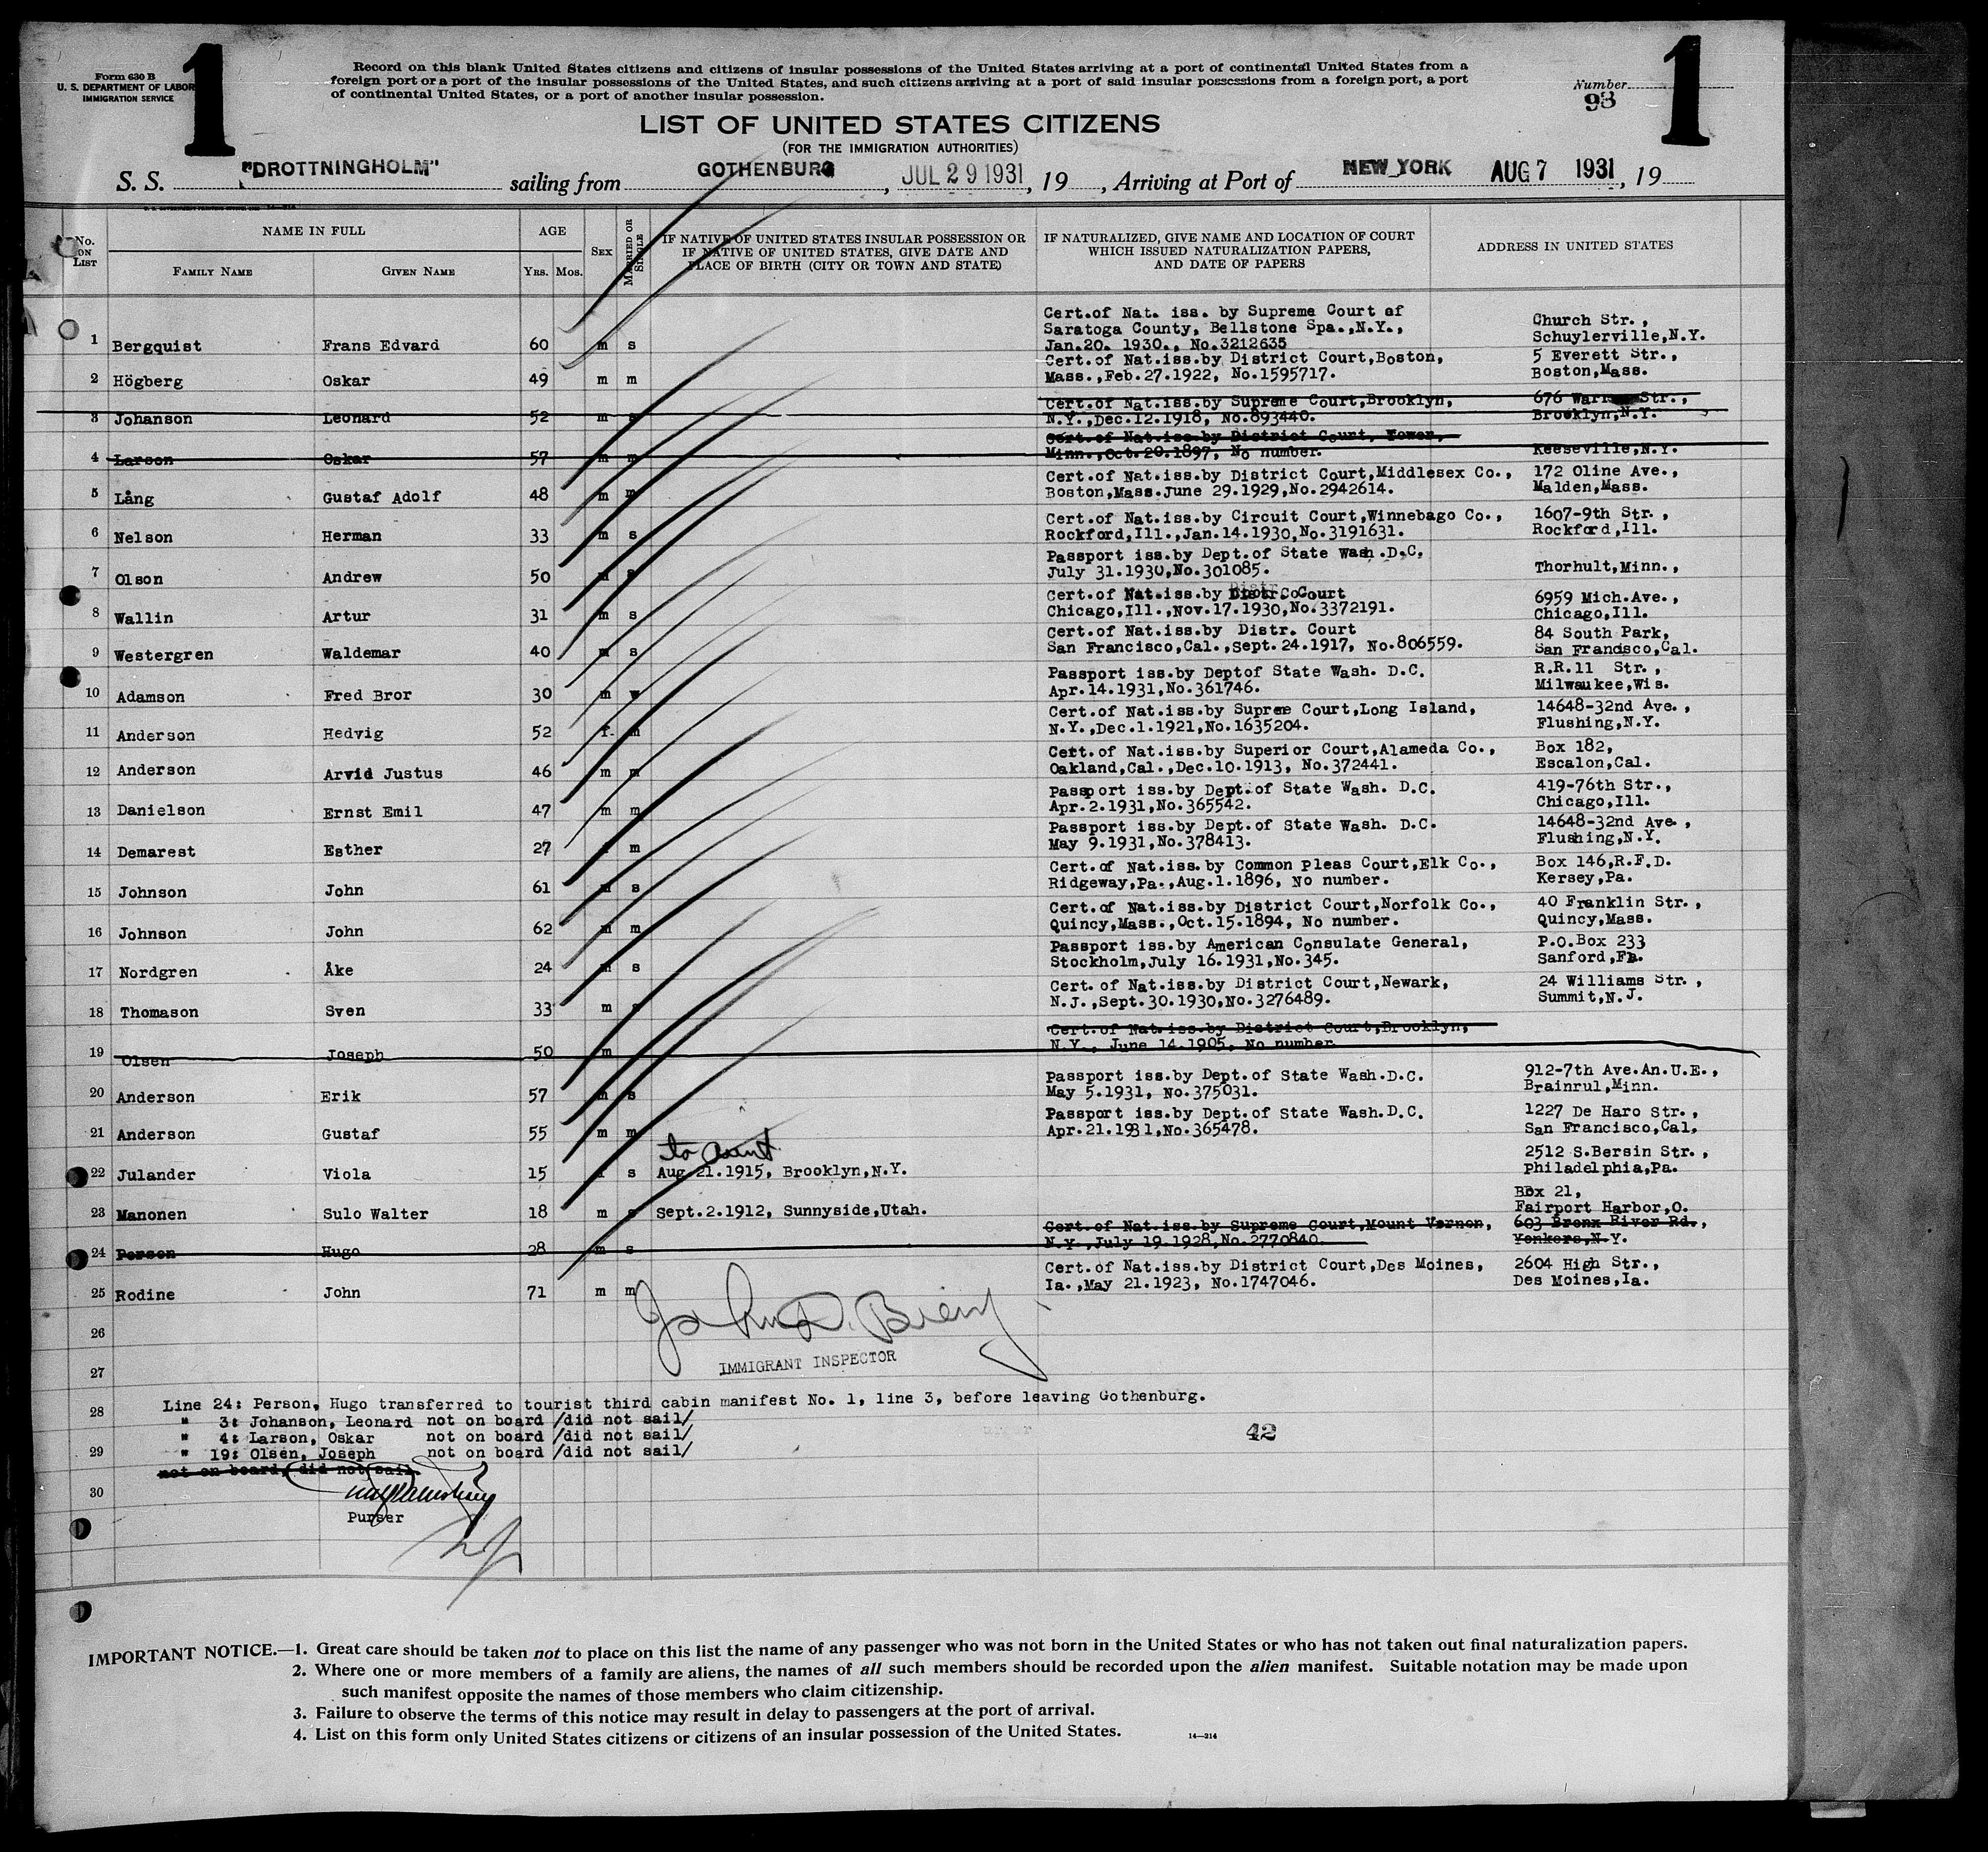 1
1
Form 630 B
U. S. DEPARTMENT OF LABOR
IMMIGRATION SERVICE
Record on this blank United States citizens and citizens of insular possessions of the United States arriving at a port of continental United States from a
foreign port or a port of the insular possessions of the United States, and such citizens arriving at a port of said insular possessions from a foreign port, a port
of continental United States, or a port of another insular possession.
Number
93
LIST OF UNITED STATES CITIZENS
(FOR THE IMMIGRATION AUTHORITIES)
S. S. "DROTTNINGHOLM" sailing from GOTHENBURG, JUL 29 1931, 19 , Arriving at Port of NEW YORK AUG 7 1931, 19
No. ON LIST
NAME IN FULL
FAMILY NAME GIVEN NAME
AGE
YRS. MOS.
SEX
MARRIED OR SINGLE
IF NATIVE OF UNITED STATES INSULAR POSSESSION OR
IF NATIVE OF UNITED STATES, GIVE DATE AND
PLACE OF BIRTH (CITY OR TOWN AND STATE)
IF NATURALIZED, GIVE NAME AND LOCATION OF COURT
WHICH ISSUED NATURALIZATION PAPERS,
AND DATE OF PAPERS
ADDRESS IN UNITED STATES
Cert.of Nat. iss. by Supreme Court of
Saratoga County, Bellstone Spa.,N.Y., Church Str.,
1 Bergquist Frans Edvard 60 m s Jan.20. 1930., No.3212635 Schuylerville,N.Y.
Cert.of Nat.iss.by District Court,Boston, 5 Everett Str.,
2 Högberg Oskar 49 m m Mass.,Feb.27.1922, No.1595717. Boston,Mass.
Cert.of Nat.iss.by Supreme Court,Brooklyn, 676 Str.,
3 Johanson Leonard 52 m s N.Y.,Dec.12.1918, No.893440. Brooklyn,N.Y.
Cert.of Nat.iss.by District Court, Tower,
4 Larson Oskar 57 m m Minn.,Oct.20.1897, No number. Keeseville,N.Y.
Cert.of Nat.iss.by District Court,Middlesex Co., 172 Oline Ave.,
5 Lång Gustaf Adolf 48 m m Boston,Mass.June 29.1929,No.2942614. Malden,Mass.
Cert.of Nat.iss.by Circuit Court,Winnebago Co., 1607-9th Str.,
6 Nelson Herman 33 m s Rockford,Ill.,Jan.14.1930,No.3191631. Rockford,Ill.
Passport iss.by Dept.of State Wash.D.C.
7 Olson Andrew 50 m s July 31.1930,No.301085. Thorhult,Minn.,
Cert.of Nat.iss.by Distr. Court 6959 Mich.Ave.,
8 Wallin Artur 31 m s Chicago,Ill.,Nov.17.1930,No.3372191. Chicago,Ill.
Cert.of Nat.iss.by Distr. Court 84 South Park,
9 Westergren Waldemar 40 m s San Francisco,Cal.,Sept.24.1917, No.806559. San Francisco,Cal.
Passport iss.by Deptof State Wash. D.C. R.R.11 Str.,
10 Adamson Fred Bror 30 m w Apr.14.1931,No.361746. Milwaukee,Wis.
Cert.of Nat.iss.by Supreme Court,Long Island, 14648-32nd Ave.,
11 Anderson Hedvig 52 f m N.Y.,Dec.1.1921,No.1635204. Flushing,N.Y.
Cert.of Nat.iss.by Superior Court,Alameda Co., Box 182,
12 Anderson Arvid Justus 46 m m Oakland,Cal.,Dec.10.1913, No.372441. Escalon,Cal.
Passport iss.by Dept.of State Wash. D.C. 419-76th Str.,
13 Danielson Ernst Emil 47 m m Apr.2.1931,No.365542. Chicago,Ill.
Passport iss.by Dept.of State Wash. D.C. 14648-32nd Ave.,
14 Demarest Esther 27 f m May 9.1931,No.378413. Flushing,N.Y.
Cert.of Nat.iss.by Common Pleas Court,Elk Co., Box 146,R.F.D.
15 Johnson John 61 m s Ridgeway,Pa.,Aug.1.1896, No number. Kersey,Pa.
Cert.of Nat.iss.by District Court,Norfolk Co., 40 Franklin Str.,
16 Johnson John 62 m m Quincy,Mass.,Oct.15.1894, No number. Quincy,Mass.
Passport iss.by American Consulate General, P.O.Box 233
17 Nordgren Åke 24 m s Stockholm,July 16.1931,No.345. Sanford,Fla.
Cert. of Nat.iss.by District Court,Newark, 24 Williams Str.,
18 Thomason Sven 33 m s N.J.,Sept.30.1930,No.3276489. Summit,N.J.
Cert.of Nat.iss.by District Court,Brooklyn,
19 Olsen Joseph 50 m N.Y., June 14.1905, No number
Passport iss.by Dept.of State Wash.D.C. 912-7th Ave.An.U.E.,
20 Anderson Erik 57 m s May 5.1931, No.375031. Brainrul,Minn.
Passport iss.by Dept.of State Wash.D.C. 1227 De Haro Str.,
21 Anderson Gustaf 55 m m Apr.21.1931,No.365478. San Francisco,Cal,
to aunt 2512 S.Bersin Str.,
22 Julander Viola 15 f s Aug.21.1915, Brooklyn,N.Y. Philadelphia,Pa.
Box 21,
23 Manonen Sulo Walter 18 m s Sept.2.1912, Sunnyside,Utah. Fairport Harbor,O.
Cert.of Nat.iss.by Supreme Court,Mount Vernon, 603 Bronx River Rd.,
24 Person Hugo 28 m s N.Y.,July 19.1928,No.2770840. Yonkers,N.Y.
Cert.of Nat.iss.by District Court,Des Moines, 2604 High Str.,
25 Rodine John 71 m m Ia.,May 21.1923, No.1747046. Des Moines,Ia.
26
John D.
IMMIGRANT INSPECTOR
27
Line 24: Person, Hugo transferred to tourist third cabin manifest No. 1, line 3, before leaving Gothenburg.
28
" 3: Johanson, Leonard not on board /did not sail/
" 4: Larson, Oskar not on board /did not sail/
42
29 " 19: Olsen, Joseph not on board /did not sail/
not on board, (did not sail
30
Purser
IMPORTANT NOTICE.—1. Great care should be taken not to place on this list the name of any passenger who was not born in the United States or who has not taken out final naturalization papers.
2. Where one or more members of a family are aliens, the names of all such members should be recorded upon the alien manifest. Suitable notation may be made upon
such manifest opposite the names of those members who claim citizenship.
3. Failure to observe the terms of this notice may result in delay to passengers at the port of arrival.
4. List on this form only United States citizens or citizens of an insular possession of the United States.
14—214